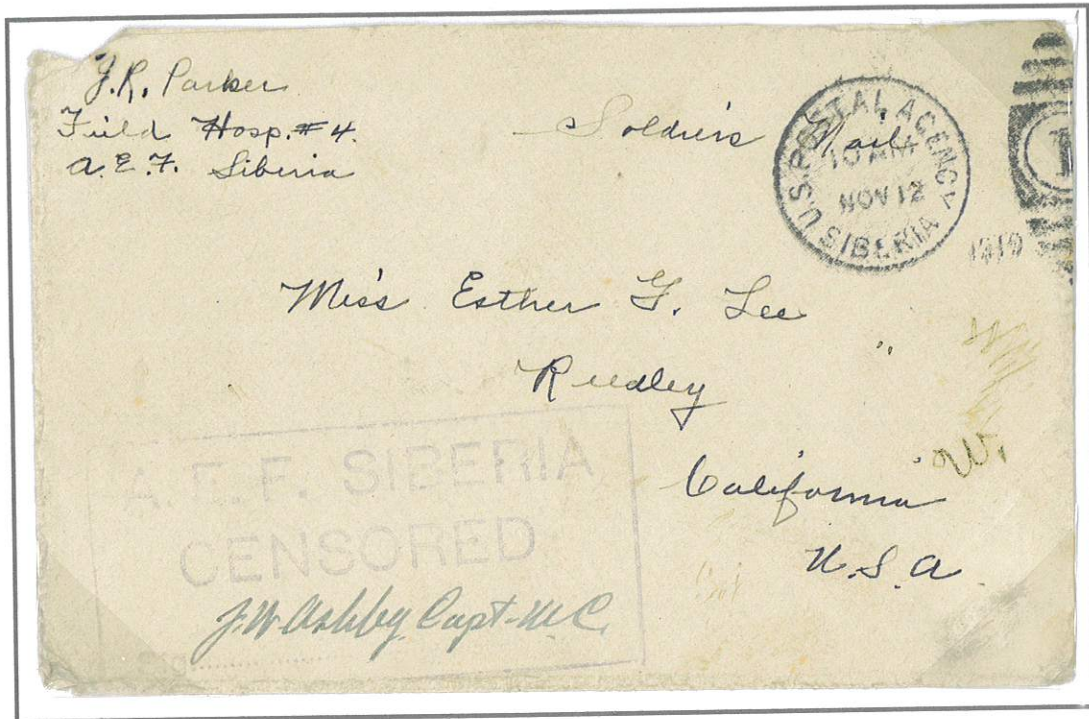 J.R. Parker
Field Hosp. #4.
A.E.F. Siberia
Soldier's Mail
U.S. POSTAL AGENCY
10 AM
NOV 12
SIBERIA
1919
1
Miss Esther G. Lee
Reedley
California
U.S.A
A.E.F. SIBERIA
CENSORED
J.W. Ashby Capt. M.C.